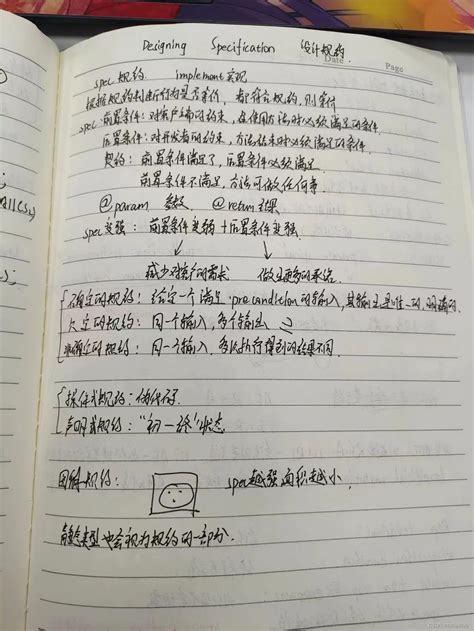 Designing Specification 设计规约
Date Page
spec 规约 implement 实现
根据规约判断行为是否等价，都符合规约，则等价
spec 前置条件：对客户端的约束，在使用方法时必须满足的条件
后置条件：对开发者的约束，方法结束时必须满足的条件
契约：前置条件满足了，后置条件必须满足
前置条件不满足，方法可做任何事
@param 参数 @return 结果
spec变强：前置条件变弱+后置条件变强
减少对客户的需求 做出更多的承诺
确定的规约：给定一个满足precondition的输入，其输出是唯一的、明确的
欠定的规约：同一个输入，多个输出
非确定的规约：同一个输入，多次执行得到的结果不同
操作式规约：伪代码
声明式规约："初-终"状态
图 规约： spec越强面积越小
类型也会视为规约的一部分